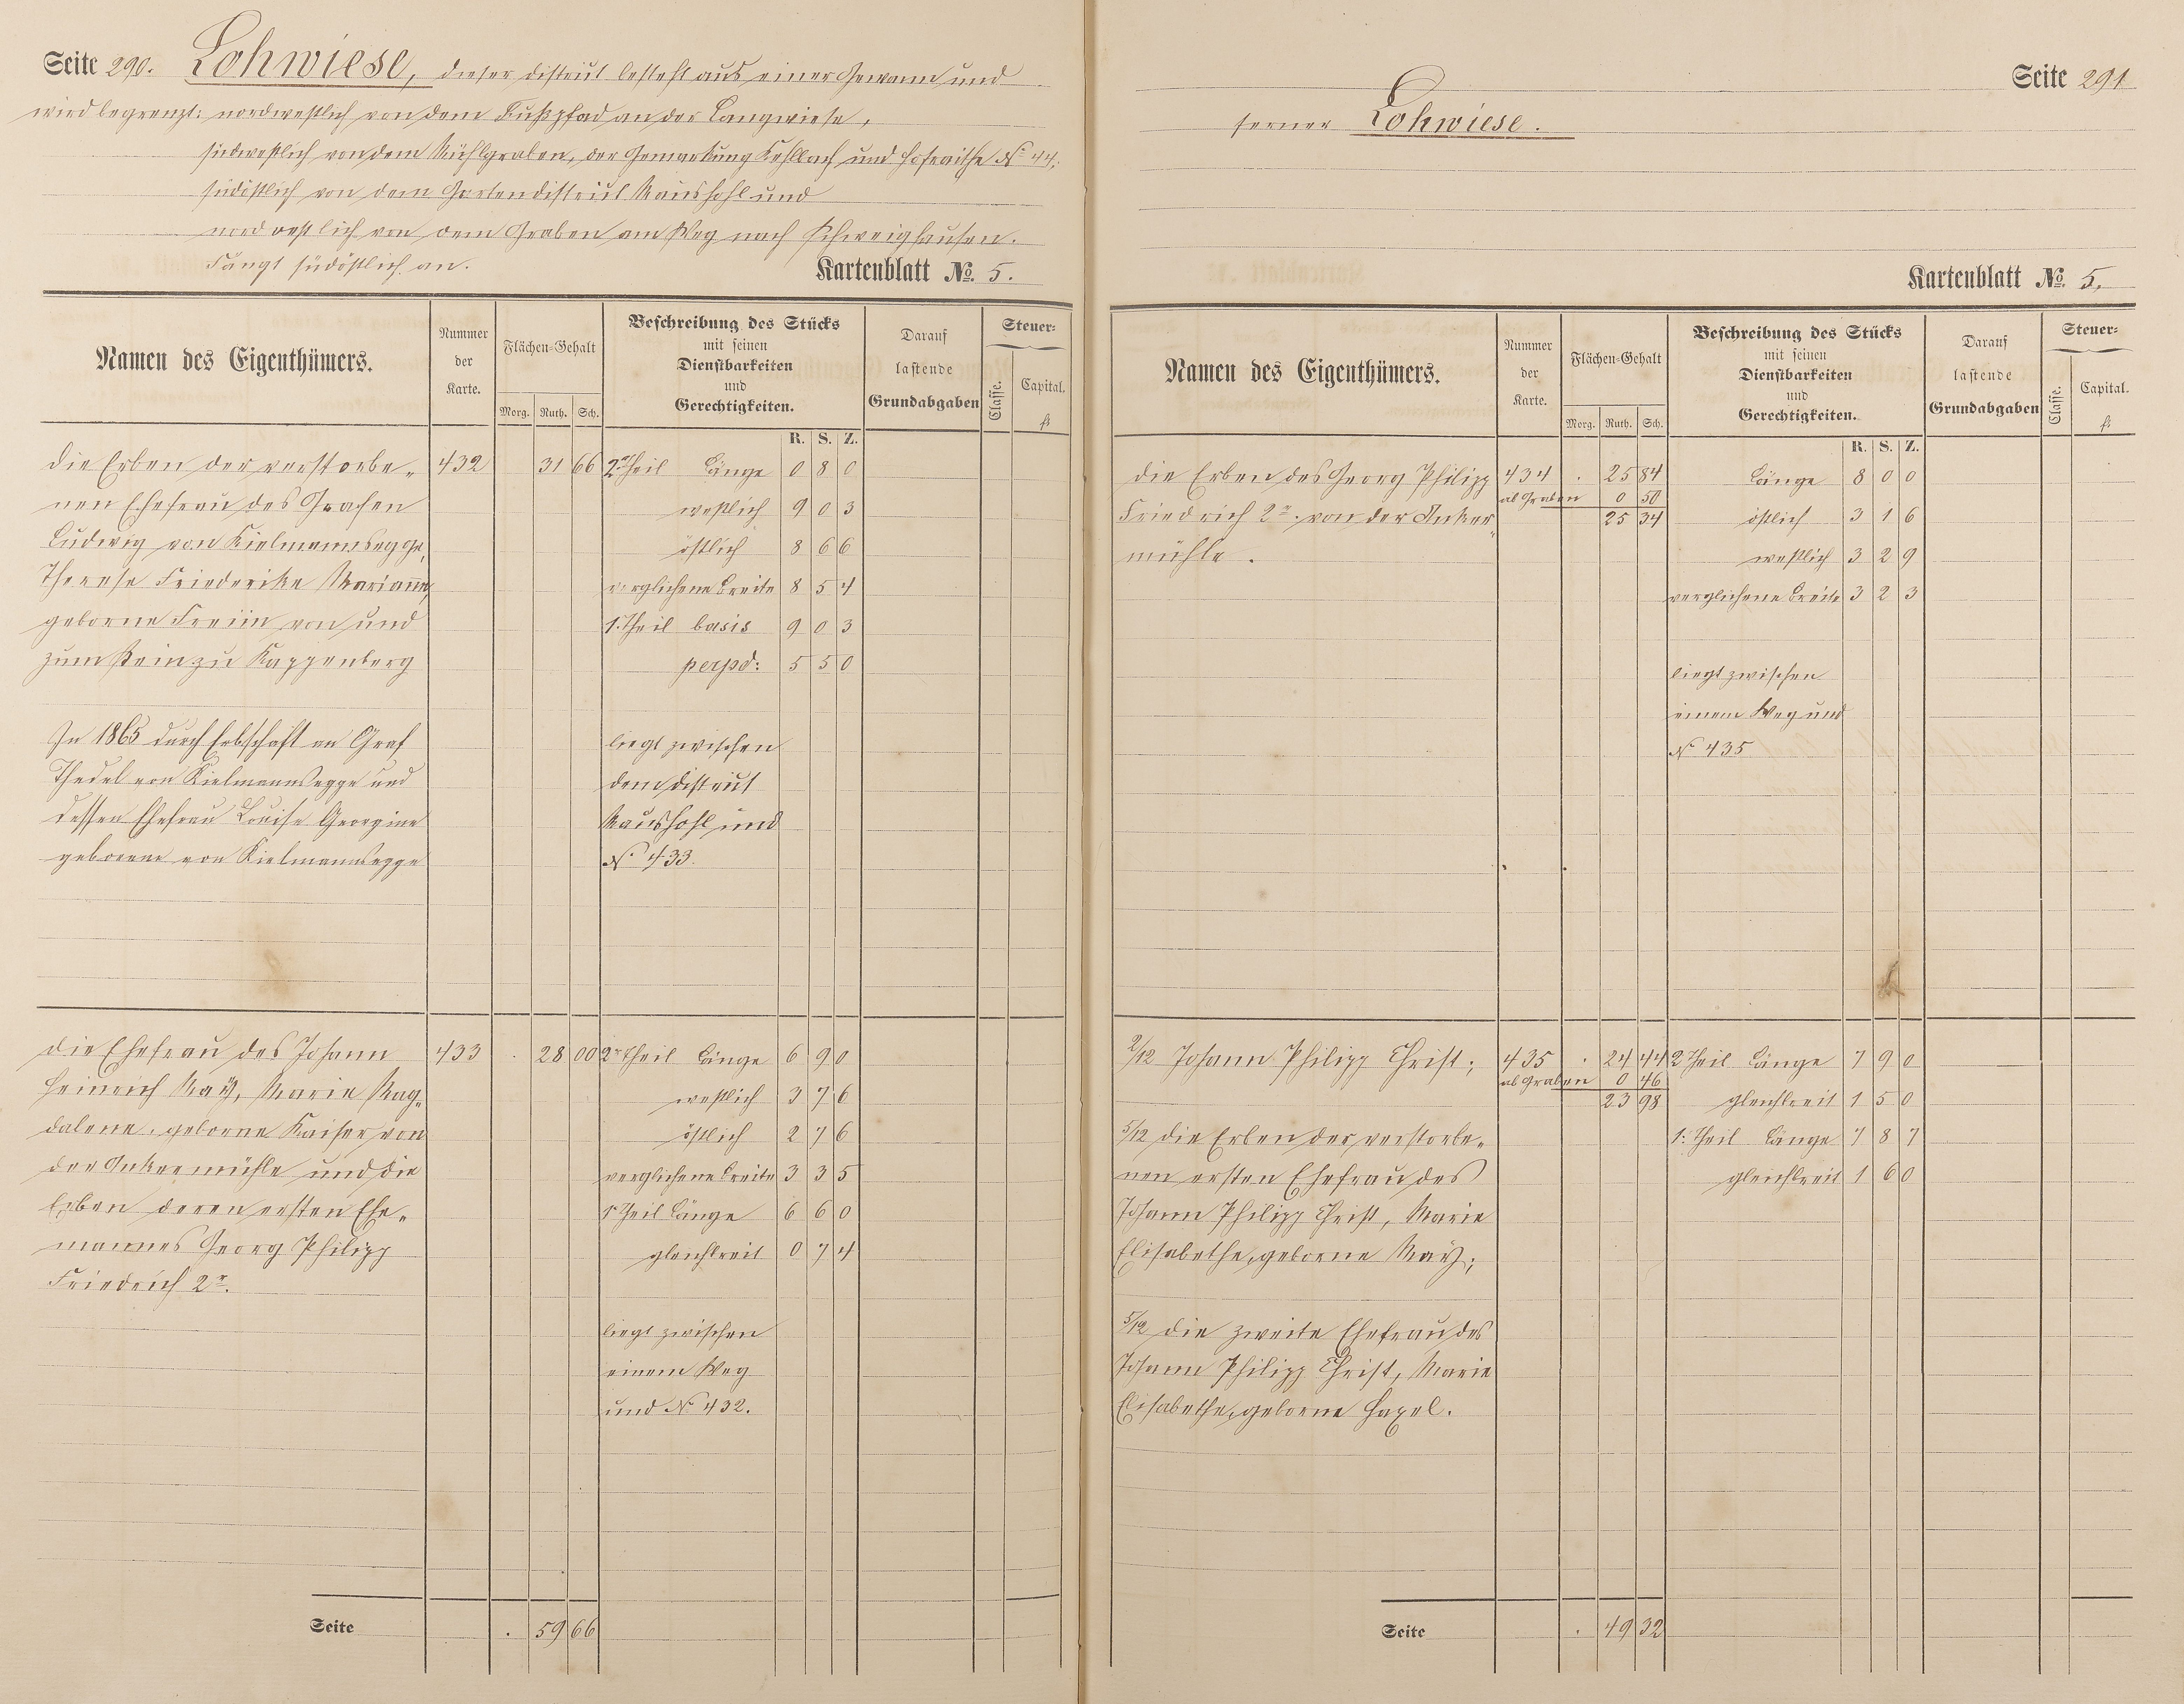 Seite 290. Lohwiese, dieser District besteht aus einer Gewann und
wird begrenzt: nordwestlich von dem Fußpfad an der Langwiese,
südwestlich von dem Mühlgraben, der Gemarkung Kehlbach und Hofraithe No 44,
südöstlich von dem Gartendistrict Maushohl und
nordostlich von dem Graben am Weg nach Schweighausen.
Fängt südöstlich an.
Kartenblatt No. 5.
Namen des Eigenthümers.
Nummer der Karte.
Flächen-Gehalt
Morg. Ruth. Sch.
Beschreibung des Stücks
mit seinen
Dienstbarkeiten
und
Gerechtigkeiten.
Darauf
lastende
Grundabgaben
Steuer-
Classe.
Capital.
fl
R. S. Z.
die Erben der verstorbe- 432 31 66 2r Theil Länge 0 8 0
nen Ehefrau des Grafen westlich 9 0 3
Ludwig von Kielmannsegge, östlich 8 6 6
Therese Friederike Marianne, verglichene Breite 8 5 4
geborne Freiin von und 1. Theil basis 9 0 3
zum Stein zu Kappenberg perpd: 5 5 0
In 1865 durch Erbschaft an Graf liegt zwischen
Thedel von Kielmannsegge und dem District
dessen Ehefrau Louise Georgine Maushohl und
geborene von Kielmannsegge No 433.
die Ehefrau des Johann 433 . 28 00 2r Theil Länge 6 9 0
Heinrich May, Marie Mag- westlich 3 7 6
dalene, geborne Kaiser von östlich 2 7 6
der Inkermühle und die verglichene Breite 3 3 5
Erben deren ersten Ehe- 1r Theil Länge 6 6 0
mannes Georg Philipp gleichbreit 0 7 4
Friedrich 2r.
liegt zwischen
einem Weg
und No 432.
Seite . 59 66
Seite 291
ferner Lohwiese.
Kartenblatt No. 5.
Namen des Eigenthümers.
Nummer der Karte.
Flächen-Gehalt
Morg. Ruth. Sch.
Beschreibung des Stücks
mit seinen
Dienstbarkeiten
und
Gerechtigkeiten.
Darauf
lastende
Grundabgaben
Steuer-
Classe.
Capital.
fl
R. S. Z.
die Erben des Georg Philipp 434 . 25 84 Länge 8 0 0
ab Graben 0 50
Friedrich 2r. von der Inker- 25 34 östlich 3 1 6
mühle. westlich 3 2 9
verglichene Breite 3 2 3
liegt zwischen
einem Weg und
No 435
2/12 Johann Philipp Christ; 435 . 24 44 2 Theil Länge 7 9 0
ab Graben 0 46
23 98 gleichbreit 1 5 0
5/12 die Erben der verstorbe- 1. Theil Länge 7 8 7
nen ersten Ehefrau des gleichbreit 1 6 0
Johann Philipp Christ, Marie
Elisabethe, geborne May;
5/12 die zweite Ehefrau des
Johann Philipp Christ, Marie
Elisabethe, geborne Haxel.
Seite . 49 32